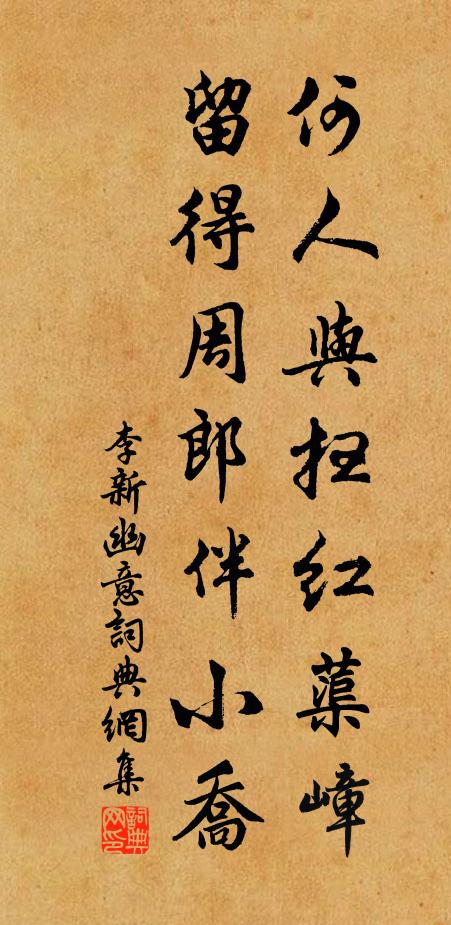 何人與扫紅蕖嶂
留得周郎伴小喬
李新幽意詞典網集
詞典网印